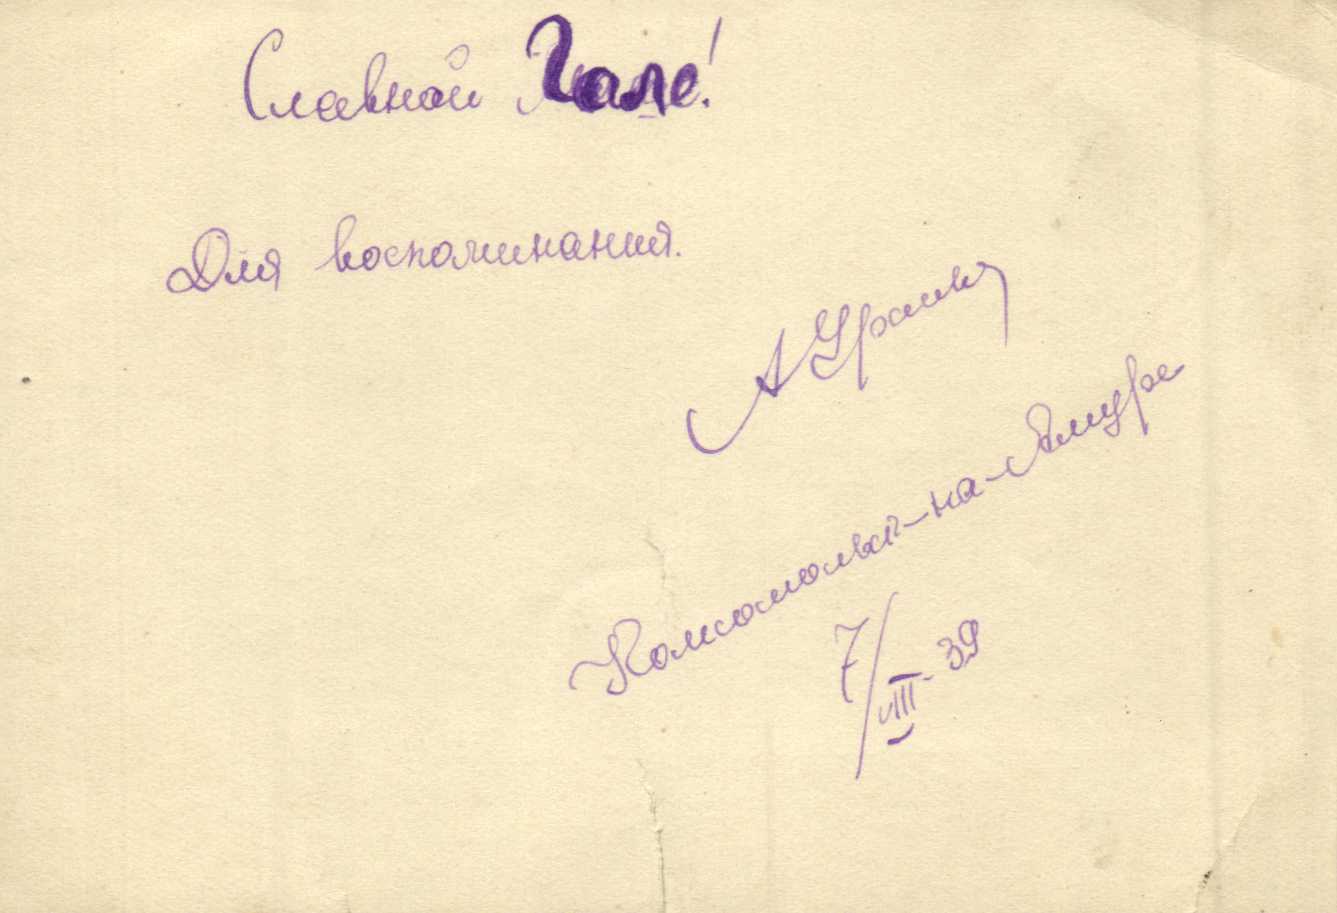 Славной Гале!
Для воспоминания.
А
Комсомольск-на-Амуре
7/III-39